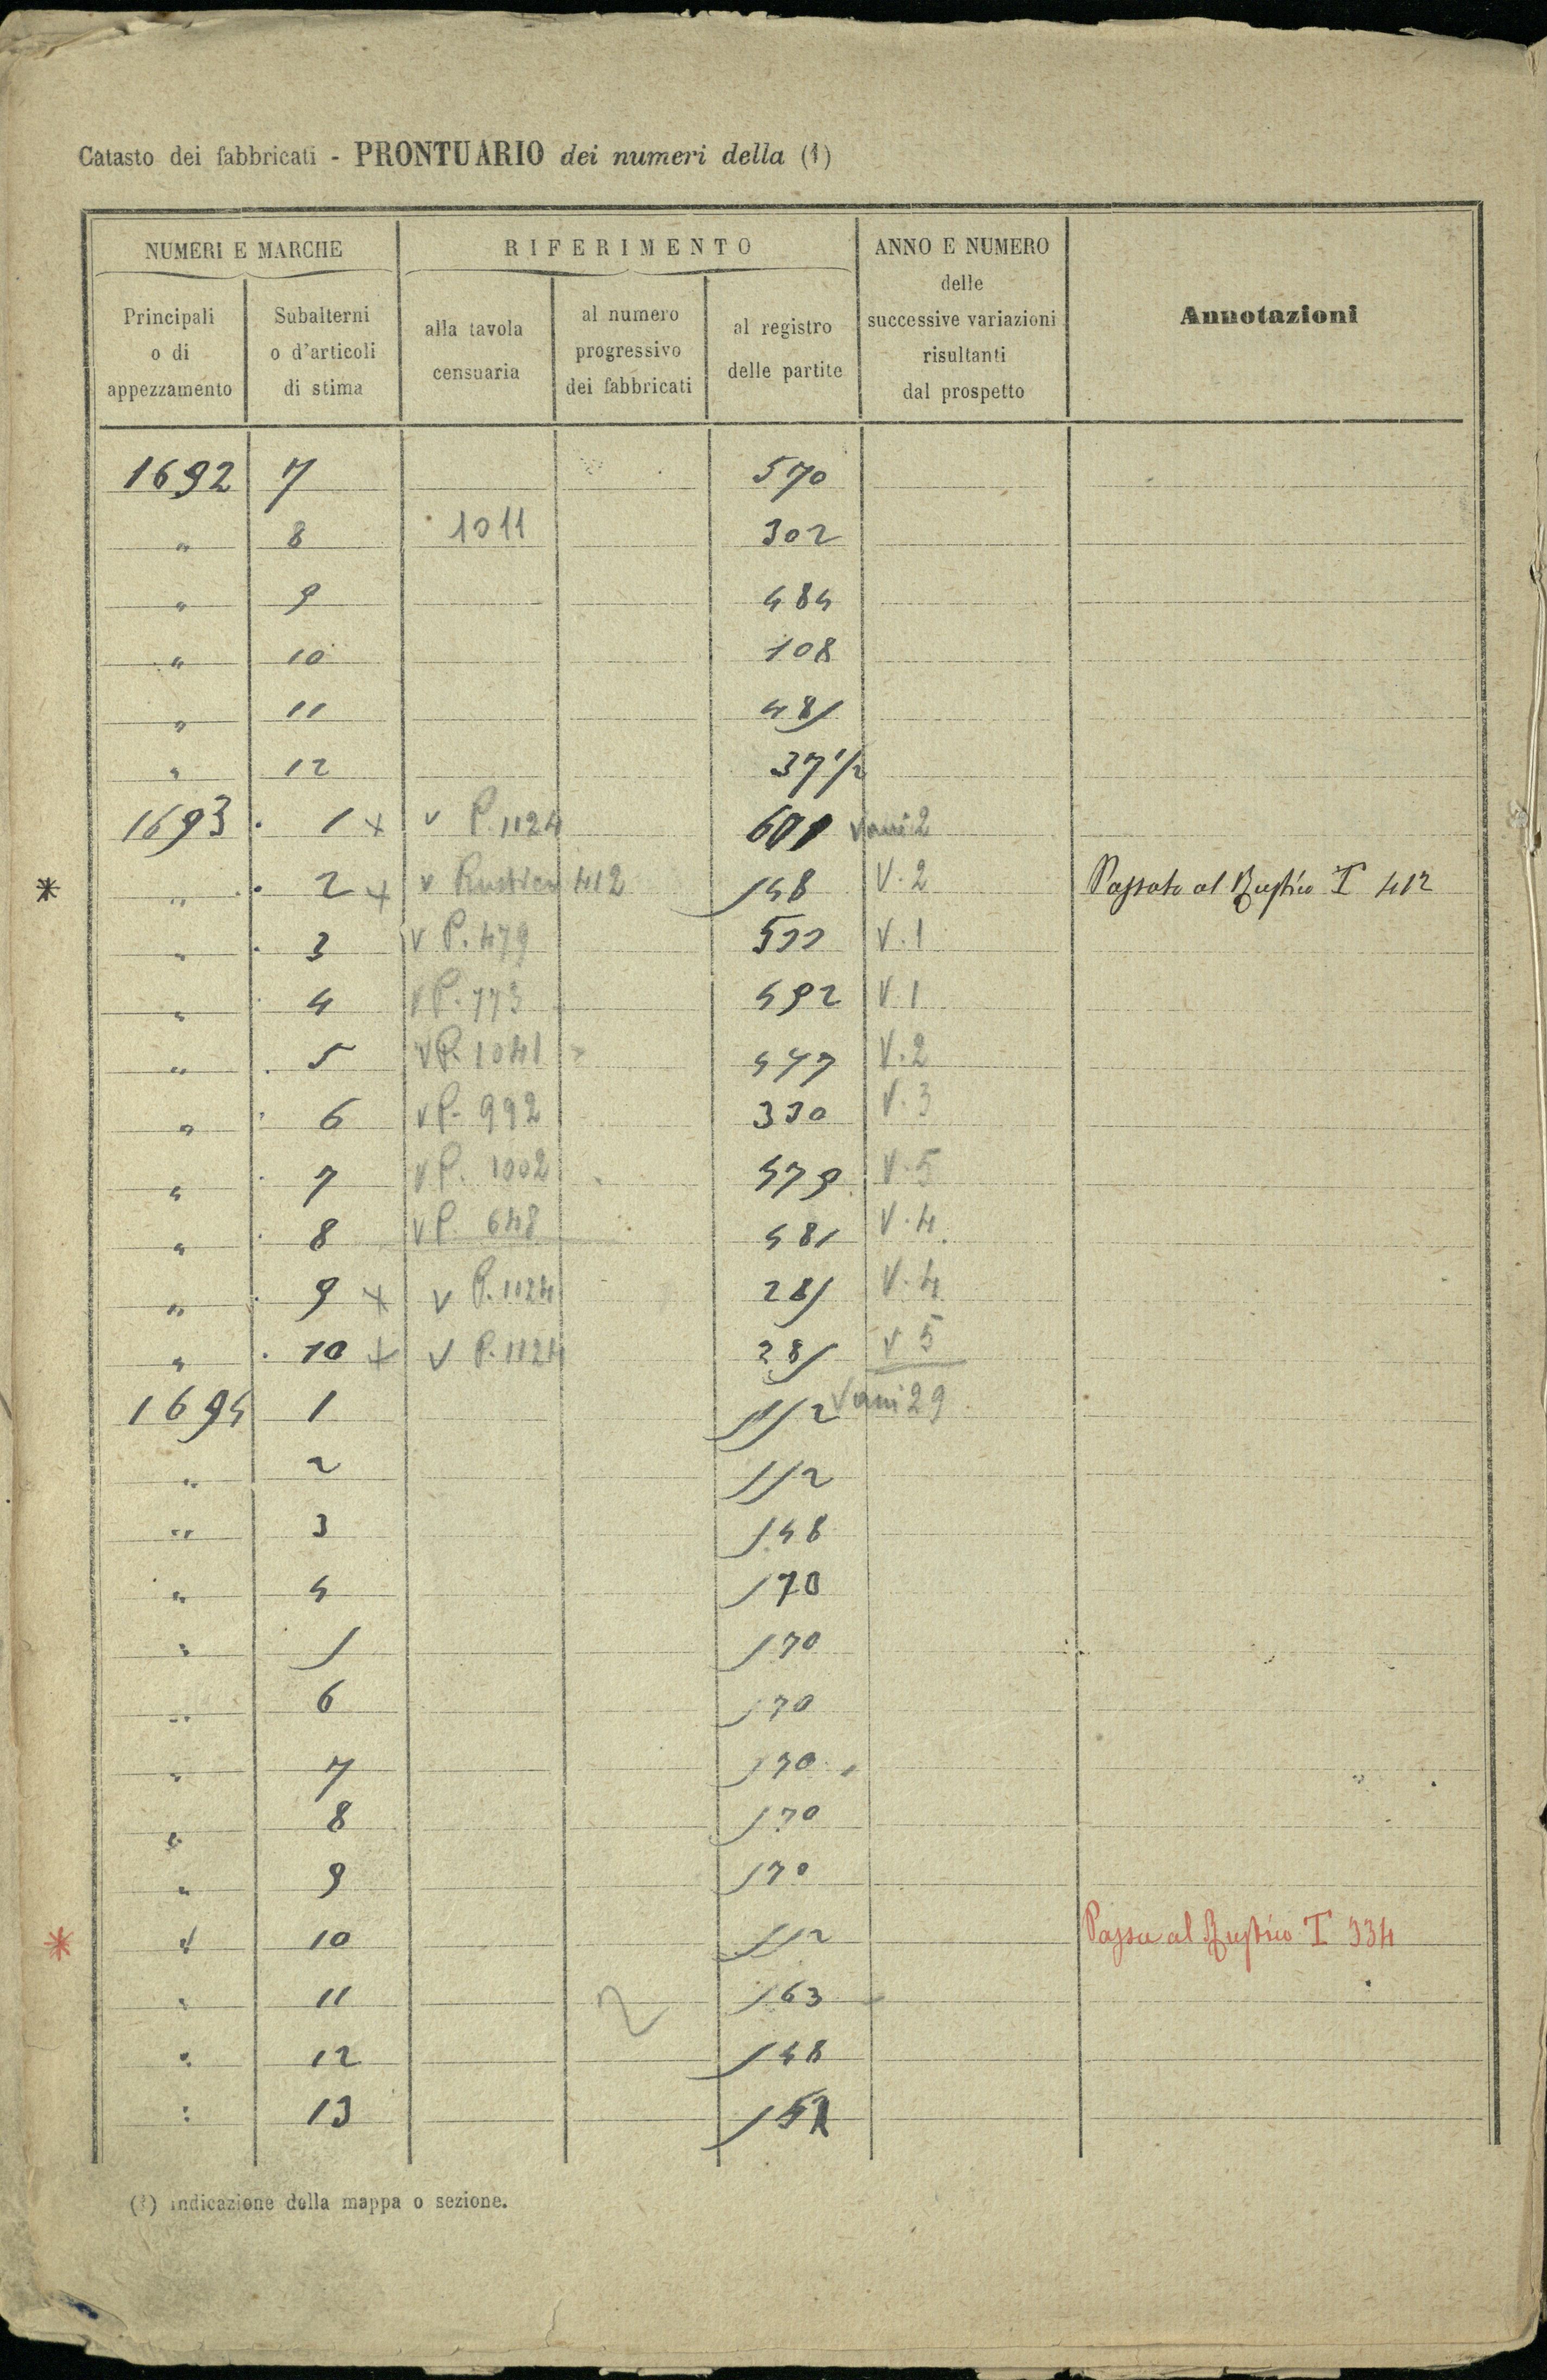 Catasto dei fabbricati - PRONTUARIO dei numeri della (1)
NUMERI E MARCHE
RIFERIMENTO
ANNO E NUMERO delle successive variazioni risultanti dal prospetto
Annotazioni
Principali o di appezzamento
Subalterni o d'articoli di stima
alla tavola censuaria
al numero progressivo dei fabbricati
al registro delle partite
1692 7 570
" 8 1011 302
" 9 484
" 10 108
" 11 485
" 12 37 1/2
1693 . 1 + v P. 1124 Vani 2
* " . 2 + v Rustico 412 148 V. 2 Passato al Rustico I 412
" . 3 v P. 479 511 V. 1
" . 4 v P. 773 492 V. 1
" . 5 v P. 1041 447 V. 2
" . 6 v P. 992 330 V. 3
" . 7 v P. 1002 479 V. 5
" . 8 v P. 648 481 V. 4
" . 9 + v P. 1124 285 V. 4
" . 10 + v P. 1124 285 V 5
1694 1 Vani 29
" 2
" 3 148
" 4 170
" 5 170
" 6 170
" 7 170
" 8 170
" 9 170
* " 10 Passa al Rustico I 334
" 11 2 163
" 12 148
" 13
(1) Indicazione della mappa o sezione.